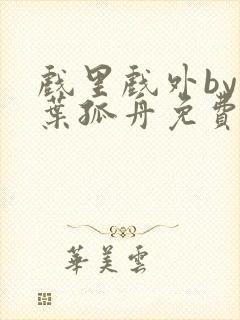 戲里戲外by
葉孤舟免費
華美雲